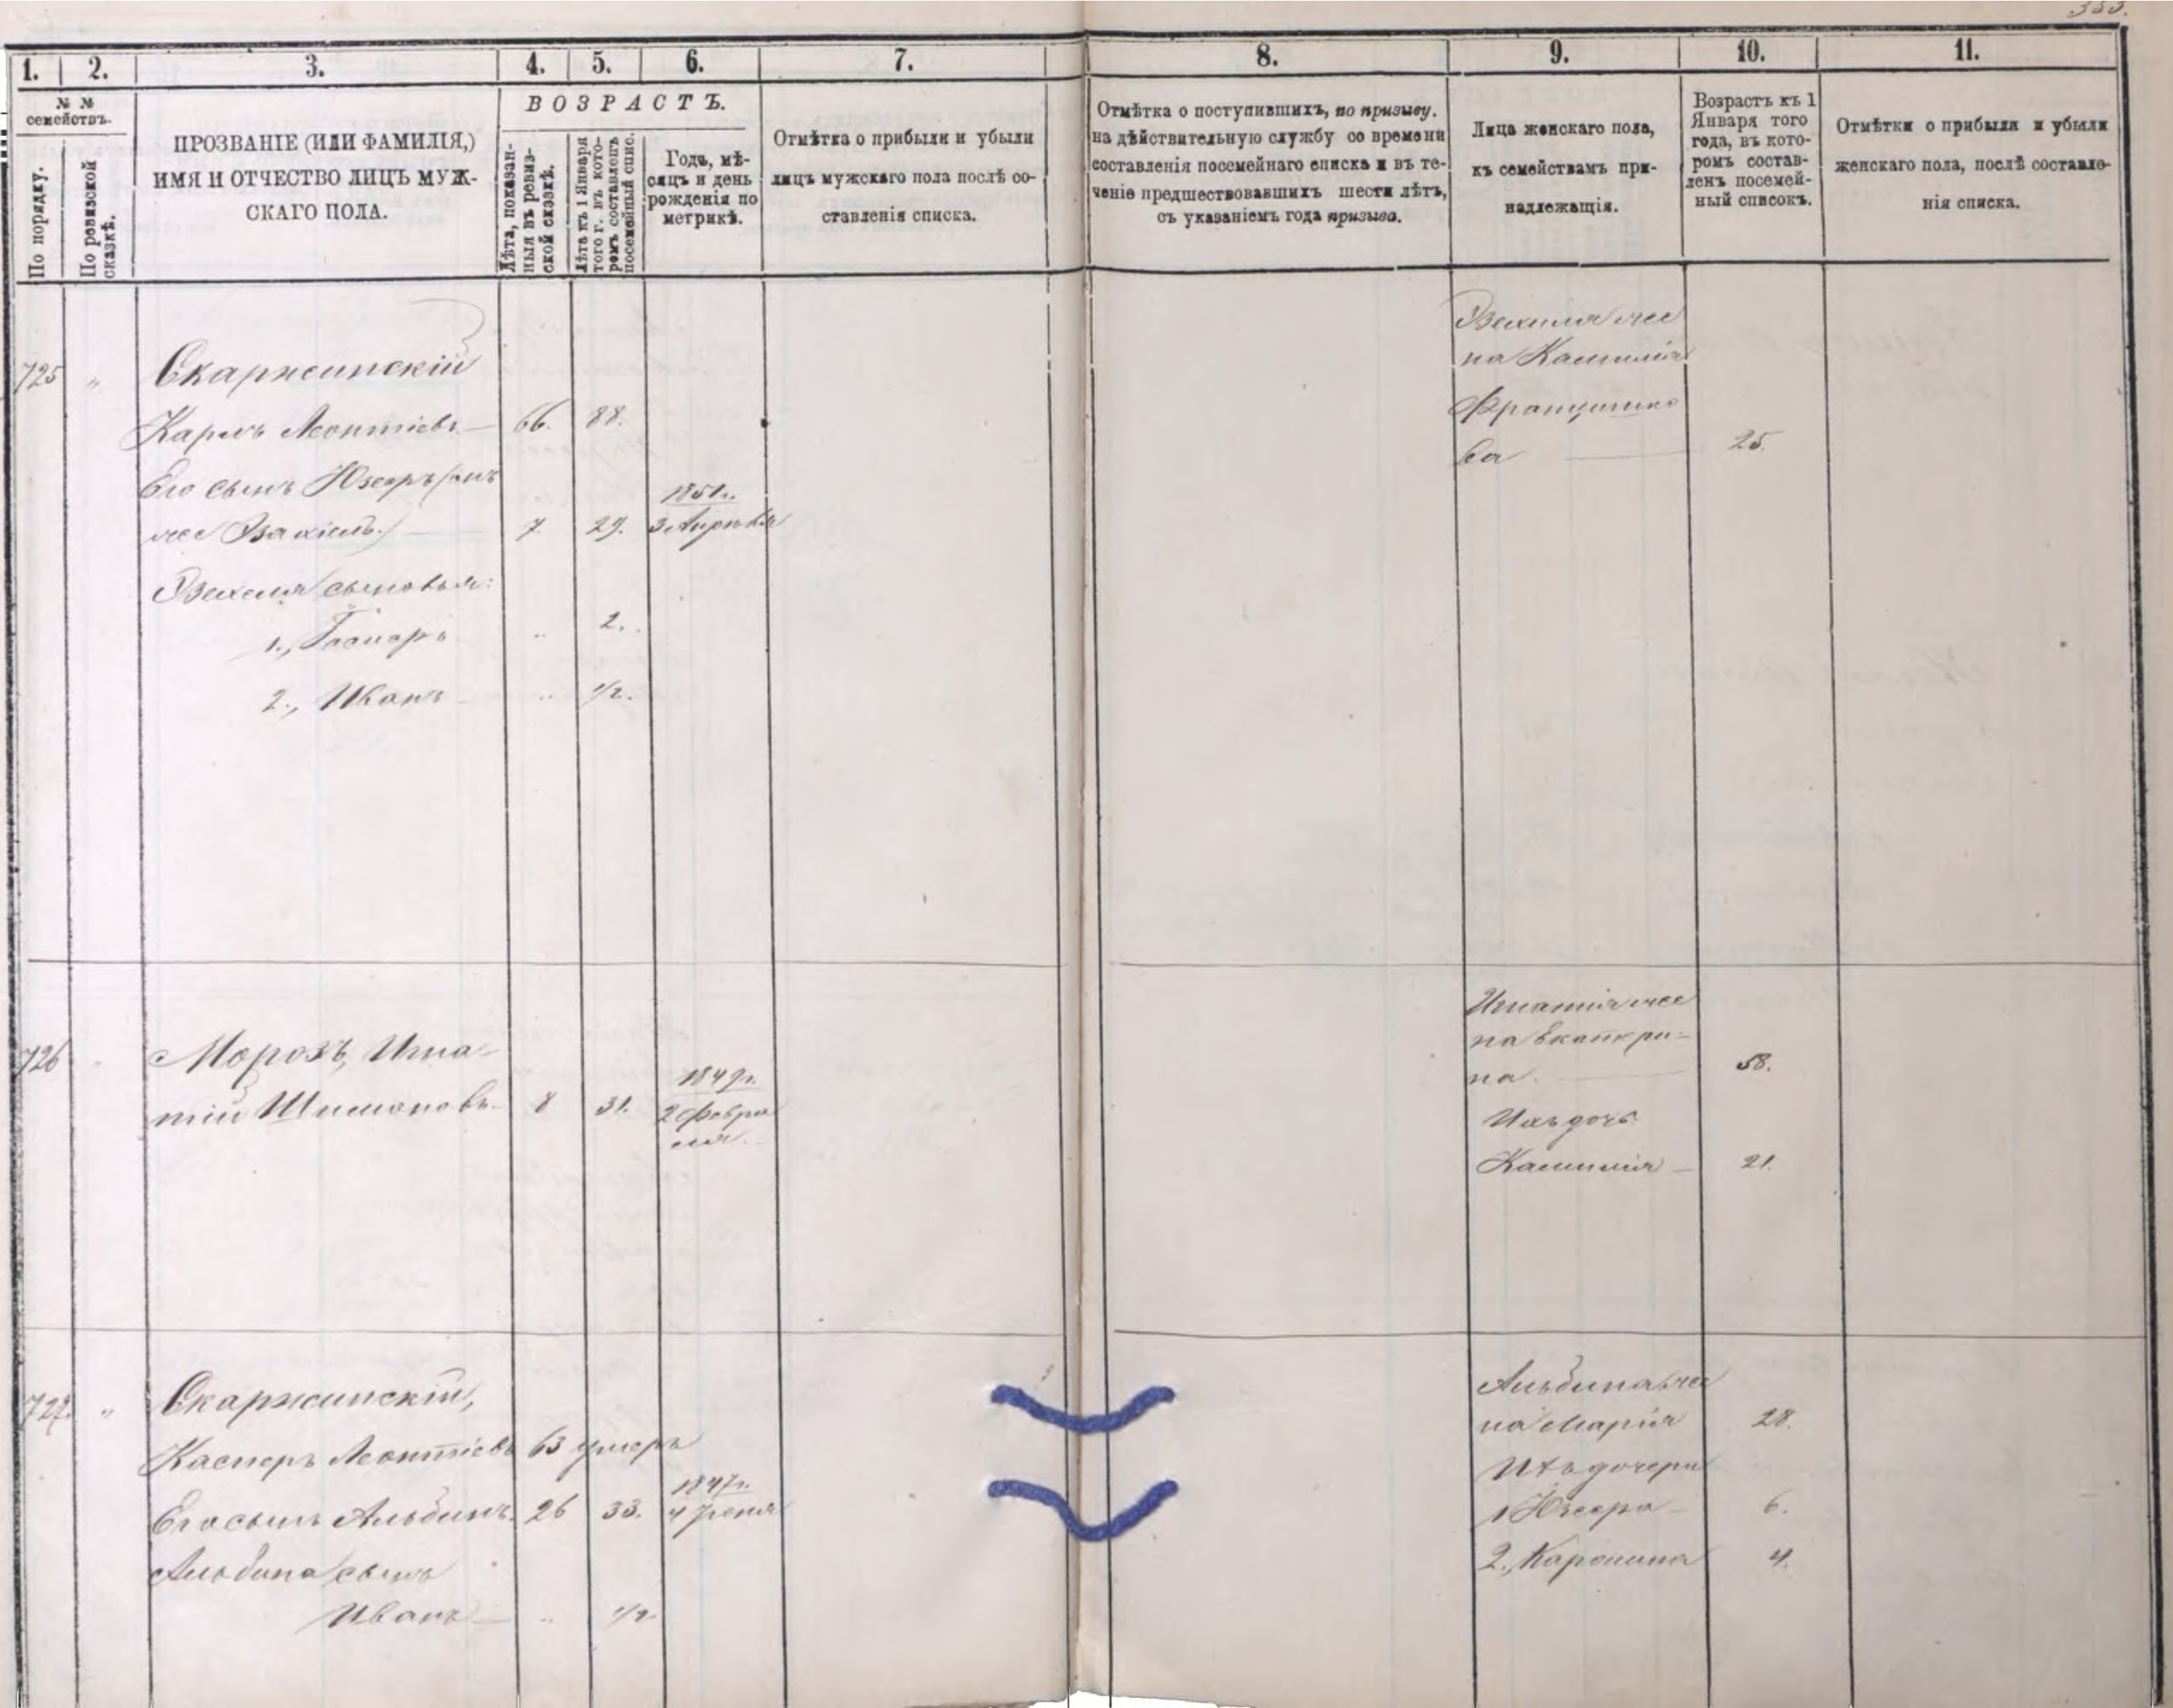 333.
1. 2. 3. 4. 5. 6. 7. 8. 9. 10. 11.
№ №
семействъ.
По порядку.
По ревизской
сказкѣ.
ПРОЗВАНІЕ (ИЛИ ФАМИЛІЯ,)
ИМЯ И ОТЧЕСТВО ЛИЦЪ МУЖ-
СКАГО ПОЛА.
ВОЗРАСТЪ.
Лѣта, показан-
ныя въ ревиз-
ской сказкѣ.
Лѣта къ 1 Января
того г. въ кото-
ромъ составленъ
посемейный спис.
Годъ, мѣ-
сяцъ и день
рожденія по
метрикѣ.
Отмѣтка о прибыли и убыли
лицъ мужскаго пола послѣ со-
ставленія списка.
Отмѣтка о поступившихъ, по призыву.
на дѣйствительную службу со времени
составленія посемейнаго списка и въ те-
ченіе предшествовавшихъ шести лѣтъ,
съ указаніемъ года призыва.
Лица женскаго пола,
къ семействамъ при-
надлежащія.
Возрастъ къ 1
Января того
года, въ кото-
ромъ состав-
ленъ посемей-
ный списокъ.
Отмѣтки о прибыли и убыли
женскаго пола, послѣ составле-
нія списка.
725 " Скаржинскій
Карлъ Леонтіевъ 66. 88.
Его сынъ Юзефъ
7. 29. 1851г.
3 Апрѣля
сыновья:
1., Гаспаръ " 2.
2., Иванъ " 1/2.
же
на Казимія
Францишко
ва 25.
726 Морозъ, Игна-
тій Шимоновъ 8 31. 1849г.
2 Февра
ля.
Игнатія же
на Екатери-
на. 58.
Ихъ дочь
Казимія 21.
727. " Скаржинскій,
Касперъ Леонтіевъ 63 умеръ
Его сынъ Альбинъ. 26 33. 1847г.
4 Іюня
Альбина сынъ
Иванъ " 1/2
Альбина же
на Марія 28.
Ихъ дочери
1 Юзефа 6.
2., Каролина 4.